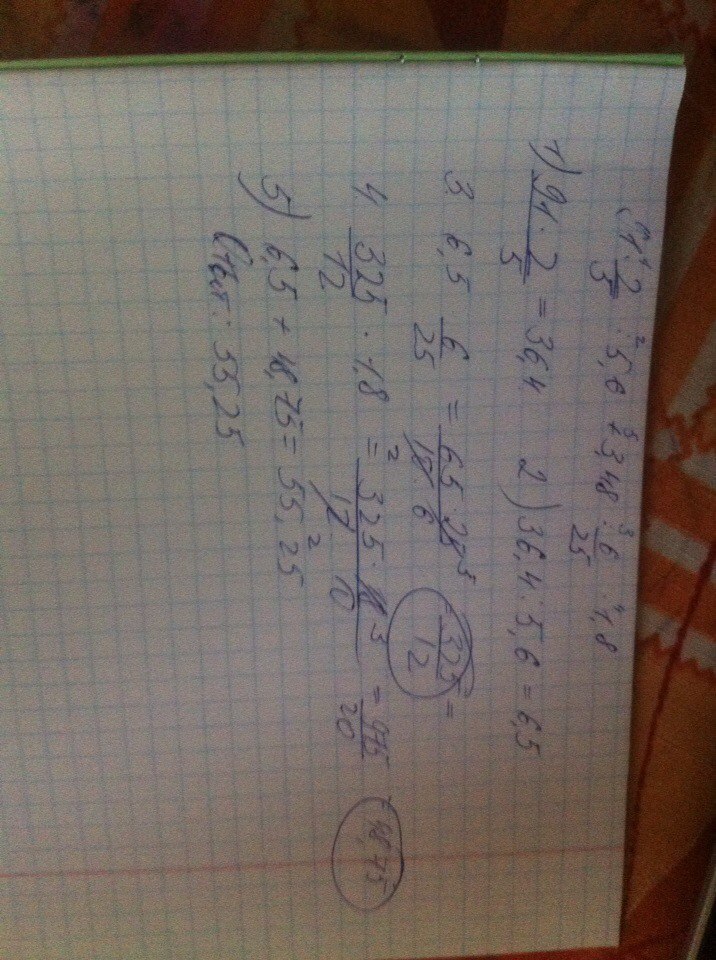 91 · 2/5 : 5,6 + 348 : 6/25 · 1,8
1) 91 · 2/5 = 36,4 2) 36,4 : 5,6 = 6,5
3 6,5 6/25 = 65 · 25 / 10 · 6 = 325/12 =
4 325/12 · 1,8 = 325 · 18 / 12 · 10 = 975/20 = 48,75
5) 6,5 + 48,75 = 55,25
Ответ: 55,25